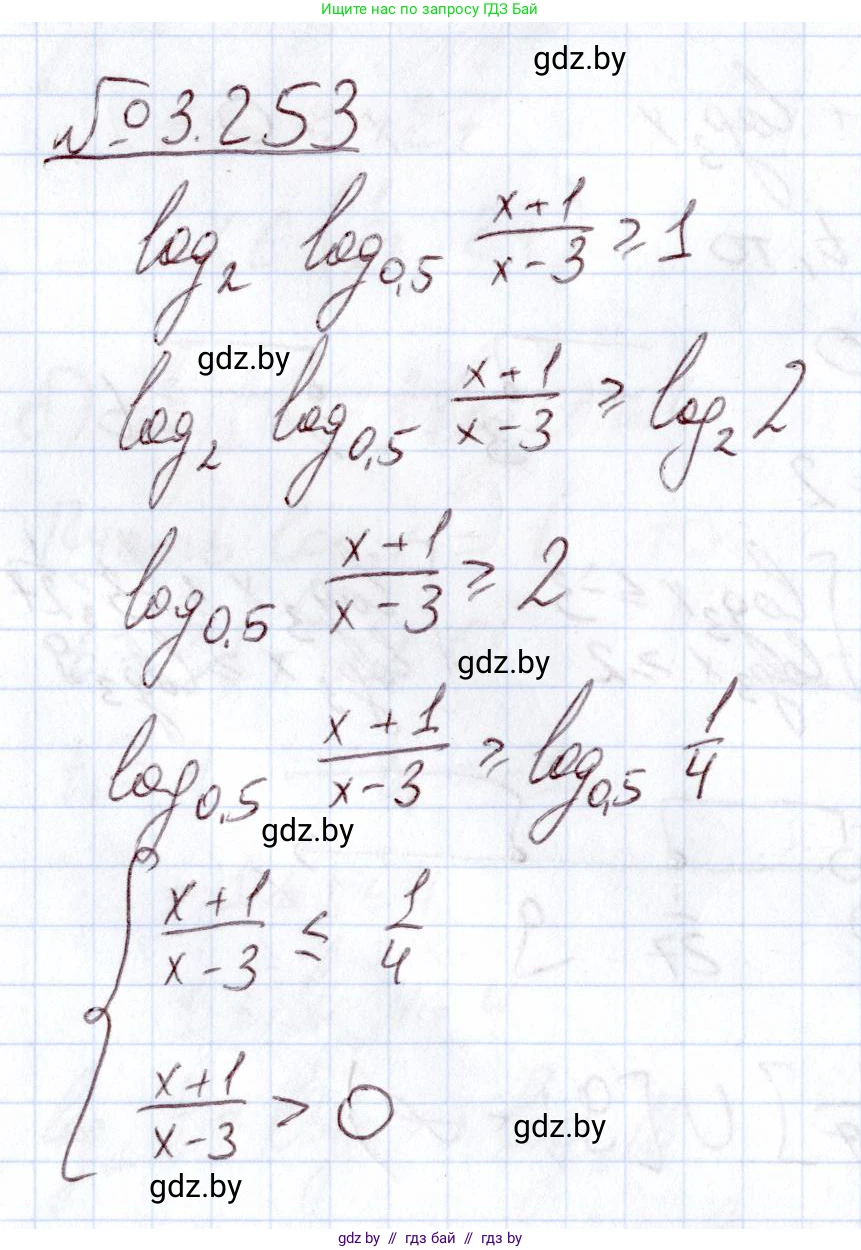 Ищите нас по запросу ГДЗ Бай
gdz.by
№ 3.253
log₂ log₀,₅ (x+1)/(x-3) ≥ 1
gdz.by
log₂ log₀,₅ (x+1)/(x-3) ≥ log₂ 2
log₀,₅ (x+1)/(x-3) ≥ 2
gdz.by
log₀,₅ (x+1)/(x-3) ≥ log₀,₅ 1/4
gdz.by
{ (x+1)/(x-3) ≤ 1/4
(x+1)/(x-3) > 0
gdz.by
gdz.by
gdz by // гдз бай // gdz by